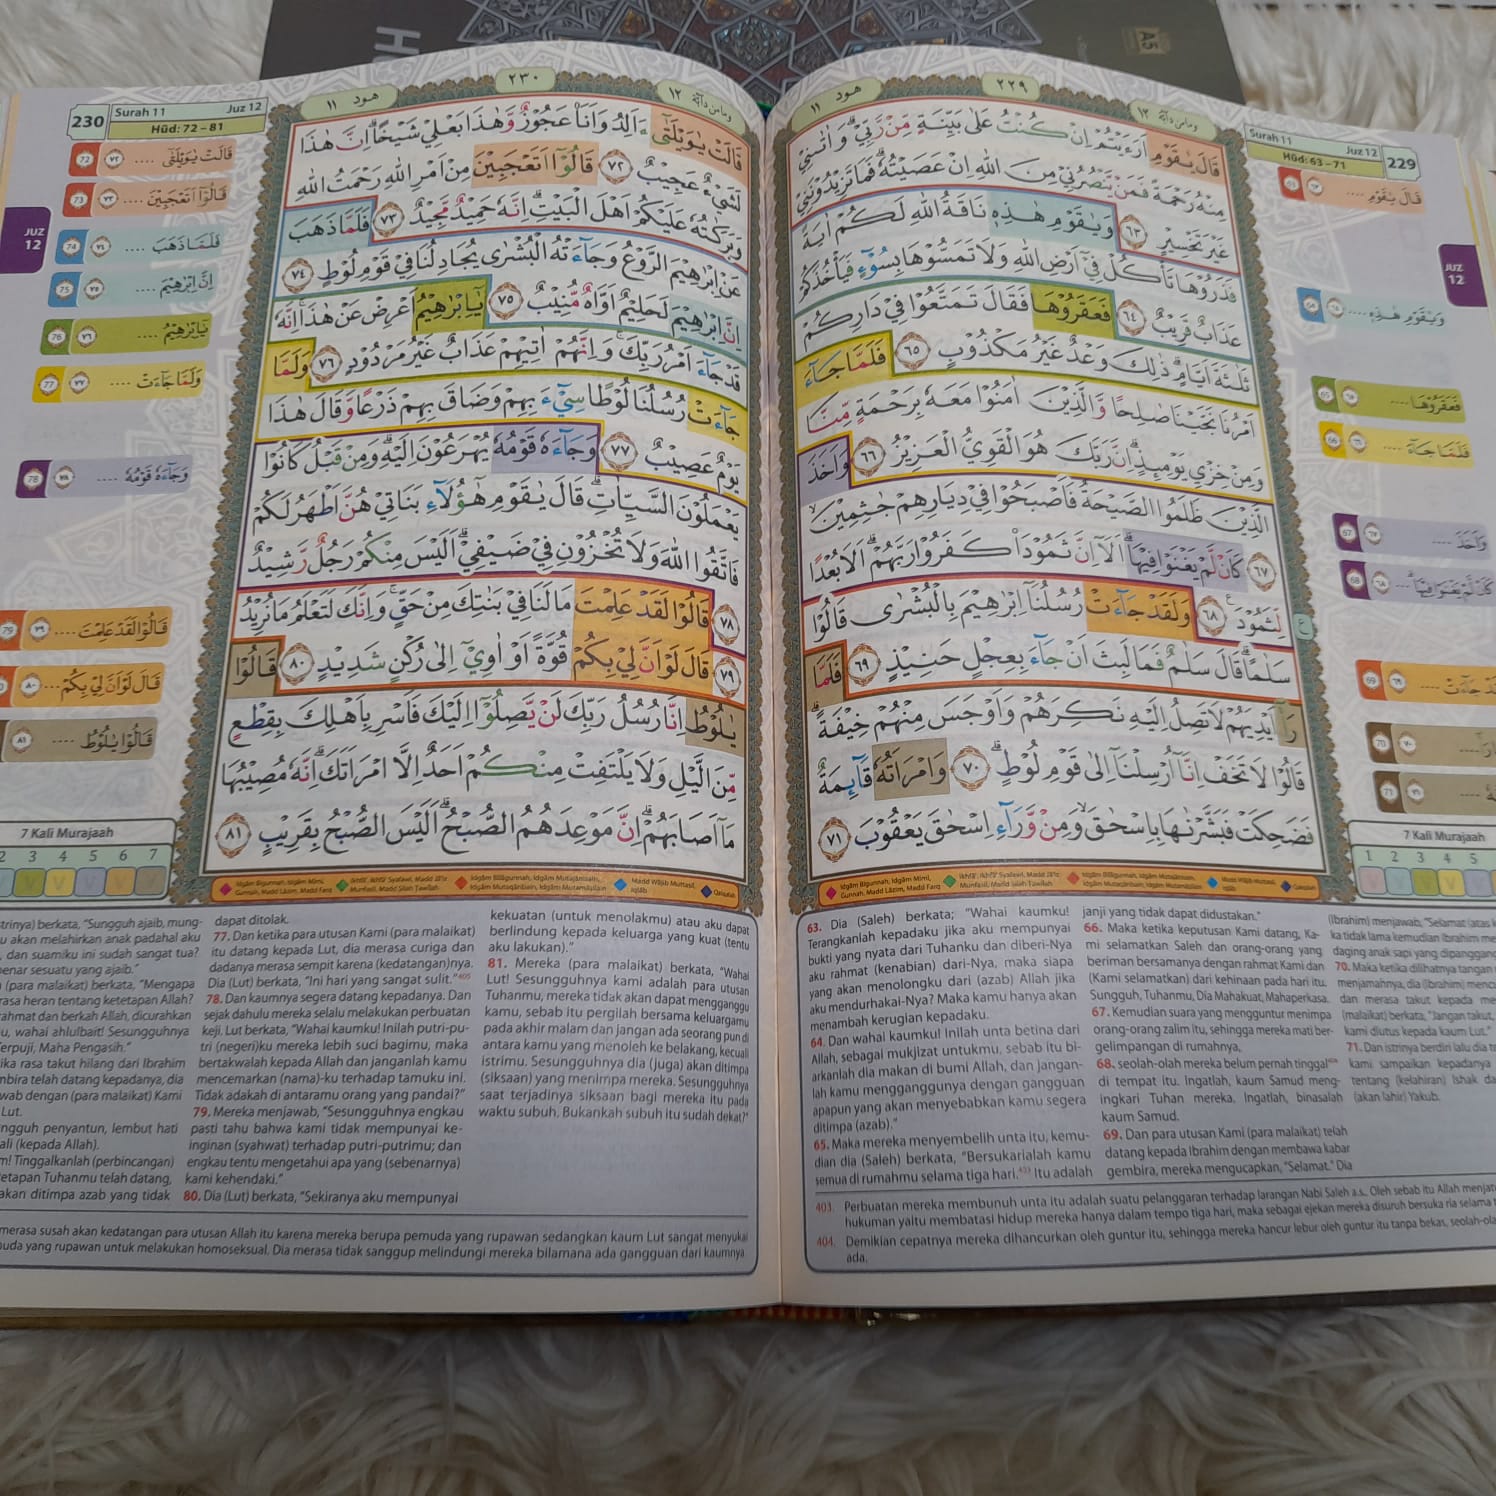 H
A5
Surah 11 Juz 12
Hūd: 63 – 71
229
ومامن دآبة ١٢
٢٢٩
هود ١١
قَالَ يٰقَوْمِ اَرَءَيْتُمْ اِنْ كُنْتُ عَلٰى بَيِّنَةٍ مِّنْ رَّبِّيْ وَاٰتٰىنِيْ
مِنْهُ رَحْمَةً فَمَنْ يَّنْصُرُنِيْ مِنَ اللّٰهِ اِنْ عَصَيْتُهٗۗ فَمَا تَزِيْدُوْنَنِيْ
غَيْرَ تَخْسِيْرٍ ٦٣ وَيٰقَوْمِ هٰذِهٖ نَاقَةُ اللّٰهِ لَكُمْ اٰيَةً
فَذَرُوْهَا تَأْكُلْ فِيْٓ اَرْضِ اللّٰهِ وَلَا تَمَسُّوْهَا بِسُوْۤءٍ فَيَأْخُذَكُمْ
عَذَابٌ قَرِيْبٌ ٦٤ فَعَقَرُوْهَا فَقَالَ تَمَتَّعُوْا فِيْ دَارِكُمْ
ثَلٰثَةَ اَيَّامٍۗ ذٰلِكَ وَعْدٌ غَيْرُ مَكْذُوْبٍ ٦٥ فَلَمَّا جَاۤءَ
اَمْرُنَا نَجَّيْنَا صٰلِحًا وَّالَّذِيْنَ اٰمَنُوْا مَعَهٗ بِرَحْمَةٍ مِّنَّا
وَمِنْ خِزْيِ يَوْمِىِٕذٍۗ اِنَّ رَبَّكَ هُوَ الْقَوِيُّ الْعَزِيْزُ ٦٦ وَاَخَذَ
الَّذِيْنَ ظَلَمُوا الصَّيْحَةُ فَاَصْبَحُوْا فِيْ دِيَارِهِمْ جٰثِمِيْنَۙ
٦٧ كَاَنْ لَّمْ يَغْنَوْا فِيْهَاۗ اَلَآ اِنَّ ثَمُوْدَا۟ كَفَرُوْا رَبَّهُمْۗ اَلَا بُعْدًا
لِّثَمُوْدَ ࣖ ٦٨ وَلَقَدْ جَاۤءَتْ رُسُلُنَآ اِبْرٰهِيْمَ بِالْبُشْرٰى قَالُوْا
سَلٰمًاۗ قَالَ سَلٰمٌ فَمَا لَبِثَ اَنْ جَاۤءَ بِعِجْلٍ حَنِيْذٍ ٦٩ فَلَمَّا
رَآٰ اَيْدِيَهُمْ لَا تَصِلُ اِلَيْهِ نَكِرَهُمْ وَاَوْجَسَ مِنْهُمْ خِيْفَةًۗ
قَالُوْا لَا تَخَفْ اِنَّآ اُرْسِلْنَآ اِلٰى قَوْمِ لُوْطٍۗ ٧٠ وَامْرَاَتُهٗ قَاۤىِٕمَةٌ
فَضَحِكَتْ فَبَشَّرْنٰهَا بِاِسْحٰقَۙ وَمِنْ وَّرَاۤءِ اِسْحٰقَ يَعْقُوْبَ ٧١
قَالَ يٰقَوْمِ ....
وَيٰقَوْمِ هٰذِهٖ ....
65 فَعَقَرُوْهَا ....
66 فَلَمَّا جَاۤءَ ....
67 وَاَخَذَ ....
68 كَاَنْ لَّمْ يَغْنَوْا فِيْهَا ...
69
70
71
JUZ 12
7 Kali Murajaah
1 2 3 4 5
Idgām Bigunnah, Idgām Mimi, Gunnah, Madd Lāzim, Madd Farq
Ikhfā', Ikhfā' Syafawi, Madd Jā'iz Munfasil, Madd Silah Tawilah
Idgām Bilāgunnah, Idgām Mutajānisain, Idgām Mutaqāribain, Idgām Mutamāṡilain
Madd Wājib Muttasil, Iqlāb
Qalqalah
63. Dia (Saleh) berkata; “Wahai kaumku!
Terangkanlah kepadaku jika aku mempunyai
bukti yang nyata dari Tuhanku dan diberi-Nya
aku rahmat (kenabian) dari-Nya, maka siapa
yang akan menolongku dari (azab) Allah jika
aku mendurhakai-Nya? Maka kamu hanya akan
menambah kerugian kepadaku.
64. Dan wahai kaumku! Inilah unta betina dari
Allah, sebagai mukjizat untukmu, sebab itu bi-
arkanlah dia makan di bumi Allah, dan jangan-
lah kamu mengganggunya dengan gangguan
apapun yang akan menyebabkan kamu segera
ditimpa (azab).”
65. Maka mereka menyembelih unta itu, kemu-
dian dia (Saleh) berkata, “Bersukarialah kamu
semua di rumahmu selama tiga hari.⁴⁰³ Itu adalah
janji yang tidak dapat didustakan.”
66. Maka ketika keputusan Kami datang, Ka-
mi selamatkan Saleh dan orang-orang yang
beriman bersamanya dengan rahmat Kami dan
(Kami selamatkan) dari kehinaan pada hari itu.
Sungguh, Tuhanmu, Dia Mahakuat, Mahaperkasa.
67. Kemudian suara yang mengguntur menimpa
orang-orang zalim itu, sehingga mereka mati ber-
gelimpangan di rumahnya,
68. seolah-olah mereka belum pernah tinggal⁴⁰⁴
di tempat itu. Ingatlah, kaum Samud meng-
ingkari Tuhan mereka. Ingatlah, binasalah
kaum Samud.
69. Dan para utusan Kami (para malaikat) telah
datang kepada Ibrahim dengan membawa kabar
gembira, mereka mengucapkan, “Selamat.” Dia
(Ibrahim) menjawab, “Selamat (atas
ka tidak lama kemudian Ibrahim
daging anak sapi yang dipanggang
70. Maka ketika dilihatnya tangan
menjamahnya, dia (Ibrahim)
dan merasa takut kepada
(malaikat) berkata, “Jangan takut,
kami diutus kepada kaum Lut.”
71. Dan istrinya berdiri lalu dia
kami sampaikan kepadanya
tentang (kelahiran) Ishak
(akan lahir) Yakub.
403. Perbuatan mereka membunuh unta itu adalah suatu pelanggaran terhadap larangan Nabi Saleh a.s. Oleh sebab itu Allah
hukuman yaitu membatasi hidup mereka hanya dalam tempo tiga hari, maka sebagai ejekan mereka disuruh bersuka ria selama
404. Demikian cepatnya mereka dihancurkan oleh guntur itu, sehingga mereka hancur lebur oleh guntur itu tanpa bekas,
ada.
230
Surah 11 Juz 12
Hūd: 72 – 81
ومامن دآبة ١٢
٢٣٠
هود ١١
قَالَتْ يٰوَيْلَتٰىٓ ءَاَلِدُ وَاَنَا۠ عَجُوْزٌ وَّهٰذَا بَعْلِيْ شَيْخًاۗ اِنَّ هٰذَا
لَشَيْءٌ عَجِيْبٌ ٧٢ قَالُوْٓا اَتَعْجَبِيْنَ مِنْ اَمْرِ اللّٰهِ رَحْمَتُ اللّٰهِ
وَبَرَكٰتُهٗ عَلَيْكُمْ اَهْلَ الْبَيْتِۗ اِنَّهٗ حَمِيْدٌ مَّجِيْدٌ ٧٣ فَلَمَّا ذَهَبَ
عَنْ اِبْرٰهِيْمَ الرَّوْعُ وَجَاۤءَتْهُ الْبُشْرٰى يُجَادِلُنَا فِيْ قَوْمِ لُوْطٍ ٧٤
اِنَّ اِبْرٰهِيْمَ لَحَلِيْمٌ اَوَّاهٌ مُّنِيْبٌ ٧٥ يٰٓاِبْرٰهِيْمُ اَعْرِضْ عَنْ هٰذَاۚ اِنَّهٗ
قَدْ جَاۤءَ اَمْرُ رَبِّكَۚ وَاِنَّهُمْ اٰتِيْهِمْ عَذَابٌ غَيْرُ مَرْدُوْدٍ ٧٦ وَلَمَّا
جَاۤءَتْ رُسُلُنَا لُوْطًا سِيْۤءَ بِهِمْ وَضَاقَ بِهِمْ ذَرْعًا وَّقَالَ هٰذَا
يَوْمٌ عَصِيْبٌ ٧٧ وَجَاۤءَهٗ قَوْمُهٗ يُهْرَعُوْنَ اِلَيْهِۗ وَمِنْ قَبْلُ كَانُوْا
يَعْمَلُوْنَ السَّيِّاٰتِۗ قَالَ يٰقَوْمِ هٰٓؤُلَاۤءِ بَنَاتِيْ هُنَّ اَطْهَرُ لَكُمْ
فَاتَّقُوا اللّٰهَ وَلَا تُخْزُوْنِ فِيْ ضَيْفِيْۗ اَلَيْسَ مِنْكُمْ رَجُلٌ رَّشِيْدٌ
٧٨ قَالُوْا لَقَدْ عَلِمْتَ مَا لَنَا فِيْ بَنٰتِكَ مِنْ حَقٍّۚ وَاِنَّكَ لَتَعْلَمُ مَا نُرِيْدُ
٧٩ قَالَ لَوْ اَنَّ لِيْ بِكُمْ قُوَّةً اَوْ اٰوِيْٓ اِلٰى رُكْنٍ شَدِيْدٍ ٨٠ قَالُوْا
يٰلُوْطُ اِنَّا رُسُلُ رَبِّكَ لَنْ يَّصِلُوْٓا اِلَيْكَ فَاَسْرِ بِاَهْلِكَ بِقِطْعٍ
مِّنَ الَّيْلِ وَلَا يَلْتَفِتْ مِنْكُمْ اَحَدٌ اِلَّا امْرَاَتَكَۗ اِنَّهٗ مُصِيْبُهَا
مَآ اَصَابَهُمْۗ اِنَّ مَوْعِدَهُمُ الصُّبْحُۗ اَلَيْسَ الصُّبْحُ بِقَرِيْبٍ ٨١
72 ٧٢ قَالَتْ يٰوَيْلَتٰى ....
73 ٧٣ قَالُوْٓا اَتَعْجَبِيْنَ ....
74 ٧٤ فَلَمَّا ذَهَبَ ....
75 ٧٥ اِنَّ اِبْرٰهِيْمَ ....
76 ٧٦ يٰٓاِبْرٰهِيْمُ ....
77 ٧٧ وَلَمَّا جَاۤءَتْ ....
78 ٧٨ وَجَاۤءَهٗ قَوْمُهٗ ....
79 ٧٩ قَالُوْا لَقَدْ عَلِمْتَ ....
٨٠ قَالَ لَوْ اَنَّ لِيْ بِكُمْ ...
٨١ قَالُوْا يٰلُوْطُ ....
JUZ 12
7 Kali Murajaah
2 3 4 5 6 7
Idgām Bigunnah, Idgām Mimi, Gunnah, Madd Lāzim, Madd Farq
Ikhfā', Ikhfā' Syafawi, Madd Jā'iz Munfasil, Madd Silah Tawilah
Idgām Bilāgunnah, Idgām Mutajānisain, Idgām Mutaqāribain, Idgām Mutamāṡilain
Madd Wājib Muttasil, Iqlāb
Qalqalah
berkata, “Sungguh ajaib, mung-
akan melahirkan anak padahal aku
dan suamiku ini sudah sangat tua?
sesuatu yang ajaib.”
(para malaikat) berkata, “Mengapa
heran tentang ketetapan Allah?
dan berkah Allah, dicurahkan
wahai ahlulbait! Sesungguhnya
Maha Pengasih.”
rasa takut hilang dari Ibrahim
telah datang kepadanya, dia
dengan (para malaikat) Kami
Lut.
penyantun, lembut hati
(kepada Allah).
Tinggalkanlah (perbincangan)
Tuhanmu telah datang,
akan ditimpa azab yang tidak
dapat ditolak.
77. Dan ketika para utusan Kami (para malaikat)
itu datang kepada Lut, dia merasa curiga dan
dadanya merasa sempit karena (kedatangan)nya.
Dia (Lut) berkata, “Ini hari yang sangat sulit.”⁴⁰⁵
78. Dan kaumnya segera datang kepadanya. Dan
sejak dahulu mereka selalu melakukan perbuatan
keji. Lut berkata, “Wahai kaumku! Inilah putri-pu-
tri (negeri)ku mereka lebih suci bagimu, maka
bertakwalah kepada Allah dan janganlah kamu
mencemarkan (nama)-ku terhadap tamuku ini.
Tidak adakah di antaramu orang yang pandai?”
79. Mereka menjawab, “Sesungguhnya engkau
pasti tahu bahwa kami tidak mempunyai ke-
inginan (syahwat) terhadap putri-putrimu; dan
engkau tentu mengetahui apa yang (sebenarnya)
kami kehendaki.”
80. Dia (Lut) berkata, “Sekiranya aku mempunyai
kekuatan (untuk menolakmu) atau aku dapat
berlindung kepada keluarga yang kuat (tentu
aku lakukan).”
81. Mereka (para malaikat) berkata, “Wahai
Lut! Sesungguhnya kami adalah para utusan
Tuhanmu, mereka tidak akan dapat mengganggu
kamu, sebab itu pergilah bersama keluargamu
pada akhir malam dan jangan ada seorang pun di
antara kamu yang menoleh ke belakang, kecuali
istrimu. Sesungguhnya dia (juga) akan ditimpa
(siksaan) yang menimpa mereka. Sesungguhnya
saat terjadinya siksaan bagi mereka itu pada
waktu subuh. Bukankah subuh itu sudah dekat?”
merasa susah akan kedatangan para utusan Allah itu karena mereka berupa pemuda yang rupawan sedangkan kaum Lut sangat menyukai
yang rupawan untuk melakukan homoseksual. Dia merasa tidak sanggup melindungi mereka bilamana ada gangguan dari kaumnya